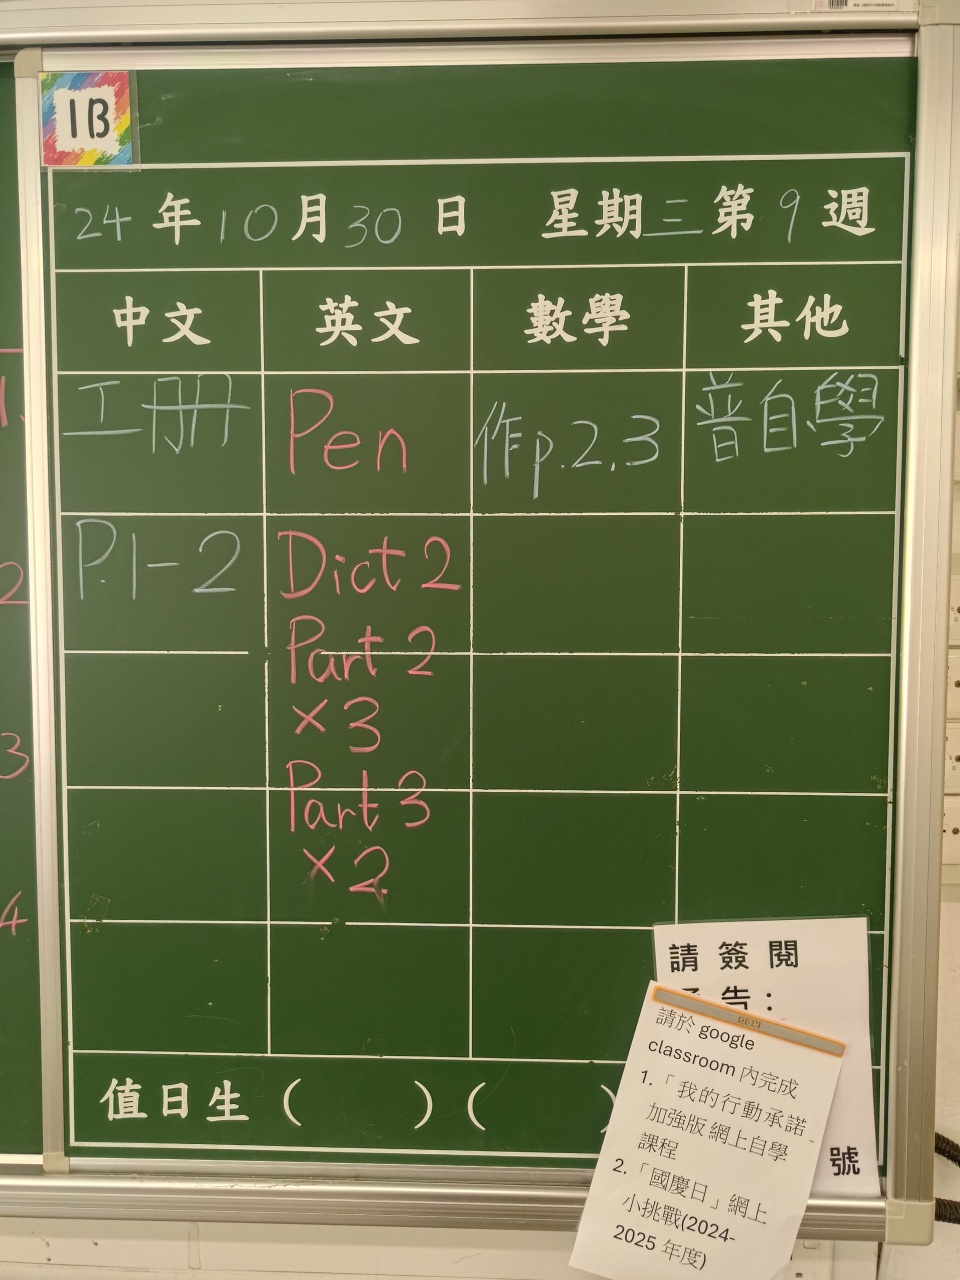 1B
24年10月30日 星期三第9週
中文 英文 數學 其他
工冊 Pen 作p.2,3 普自學
P.1-2 Dict 2
Part 2
×3
Part 3
×2
值日生 ( ) (
請簽閱
告：
號
請於 google
classroom 內完成
1.「我的行動承諾-
加強版網上自學
課程
2.「國慶日」網上
小挑戰(2024-
2025 年度)
1.
2
3
4